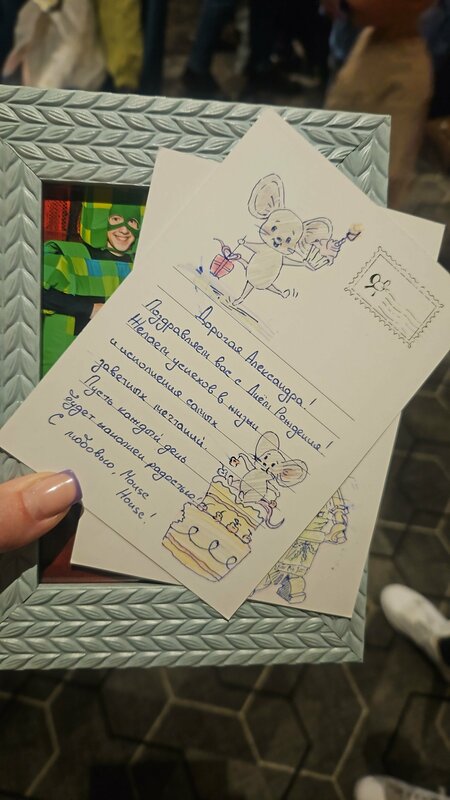 Дорогая Александра!
Поздравляем вас с Днём Рождения!
Желаем успехов в жизни
и исполнения самых
заветных мечтаний.
Пусть каждый день
будет наполнен радостью.
С любовью, Mouse
House!